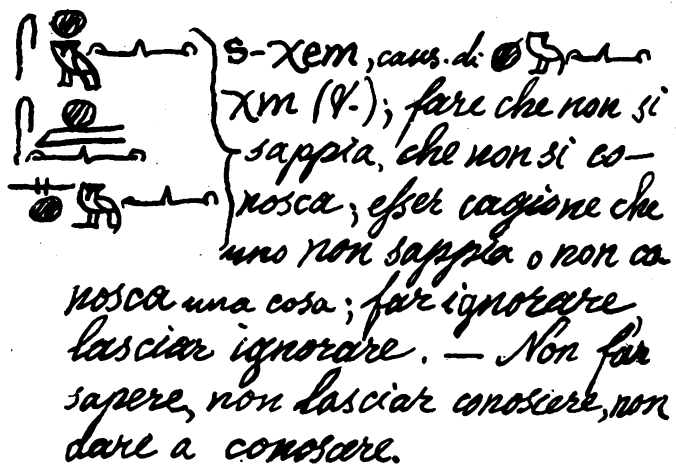 s-χem, caus. di
χm (V.); fare che non si
sappia, che non si co-
nosca; esser cagione che
uno non sappia o non co-
nosca una cosa; far ignorare,
lasciar ignorare. — Non far
sapere, non lasciar conoscere, non
dare a conoscare.